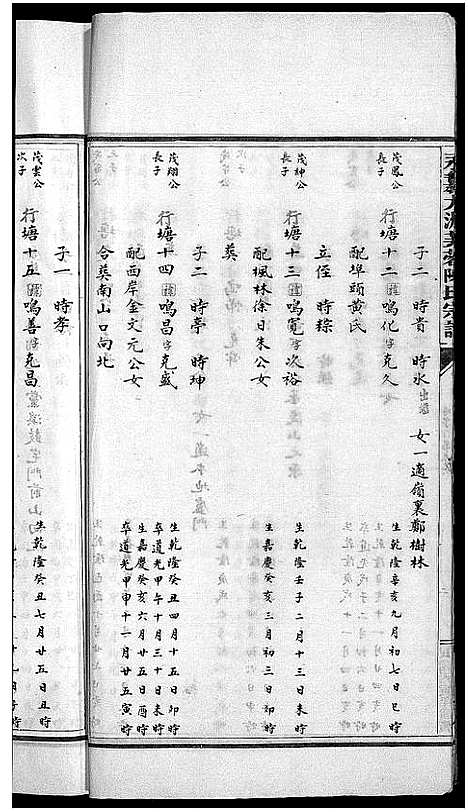 茂鳳公
長子
行塘十二 諱鳴化字克久 生乾隆辛亥九月初七日巳時
配埠頭黃氏
子二 時貴 時水出繼 女一適嶺裏鄭樹林
立侄 時琮
茂神公
長子
行塘十三 諱鳴寬字次裕 生乾隆壬子二月十三日未時
配楓林徐日朱公女 生嘉慶癸亥三月初三日卯時
葬
子二 時亭 時珅
茂翔公
長子
行塘十四 諱鳴昌字克盛 生乾隆癸丑四月十五日卯時 卒道光甲午十月三十日未時
配西岸金文元公女 生嘉慶癸亥六月廿五日酉時 卒道光甲申十一月廿五寅時
合葬南山口向北
子一 時孝
茂雲公
次子
行塘十五 諱鳴善字克昌 生乾隆癸丑七月廿五日丑時